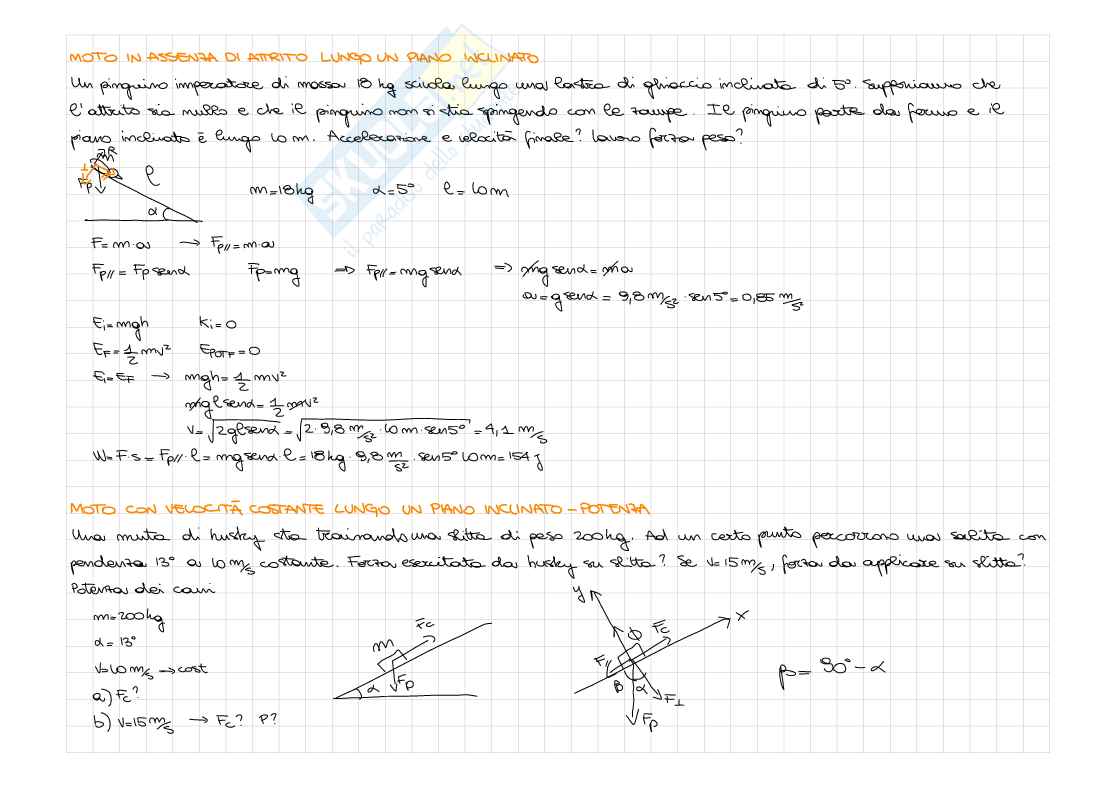 MOTO IN ASSENZA DI ATTRITO LUNGO UN PIANO INCLINATO
Un pinguino imperatore di massa 18 kg scivola lungo una lastra di ghiaccio inclinata di 5°. Supponiamo che
l'attrito sia nullo e che il pinguino non si stia spingendo con le zampe. Il pinguino parte da fermo e il
piano inclinato è lungo 10 m. Accelerazione e velocità finale? Lavoro forza peso?
m R
Fp
ℓ
α
m=18kg α=5° ℓ=10m
F=m·a → Fp//=m·a
Fp//=Fp senα Fp=mg ⇒ Fp//=mg senα ⇒ mg senα=ma
a=g senα = 9,8 m/s² · sen5°=0,85 m/s²
Ei=mgh Ki=0
EF=1/2 mv² EPOTF=0
Ei=EF → mgh=1/2 mv²
mgℓsenα=1/2 mv²
v=√2gℓsenα=√2·9,8 m/s²·10m·sen5°=4,1 m/s
W=F·s=Fp//·ℓ=mg senα·ℓ=18kg·9,8 m/s²·sen5°10m=154J
MOTO CON VELOCITÀ COSTANTE LUNGO UN PIANO INCLINATO - POTENZA
Una muta di husky sta trainando una slitta di peso 200kg. Ad un certo punto percorrono una salita con
pendenza 13° a 10 m/s costante. Forza esercitata da husky su slitta? Se v=15m/s, forza da applicare su slitta?
Potenza dei cani
m=200kg
α=13°
v=10 m/s → cost
a) Fc?
b) v=15 m/s → Fc? P?
m Fc
α Fp
y x
Φ Fc
F//
β α F⊥
Fp
β=90°-α
SKUOLA.net
il paradiso dello